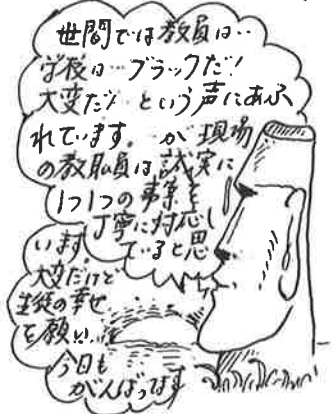 世間では教員は‥
学校は‥ブラックだ!
大変だ! という声にあふ
れています。が 現場
の教職員は誠実に
1つ1つの事案を
丁寧に対応し
ていると思
います。
大変だけど
生徒の幸せ
を願い、
今日も
がんばってます